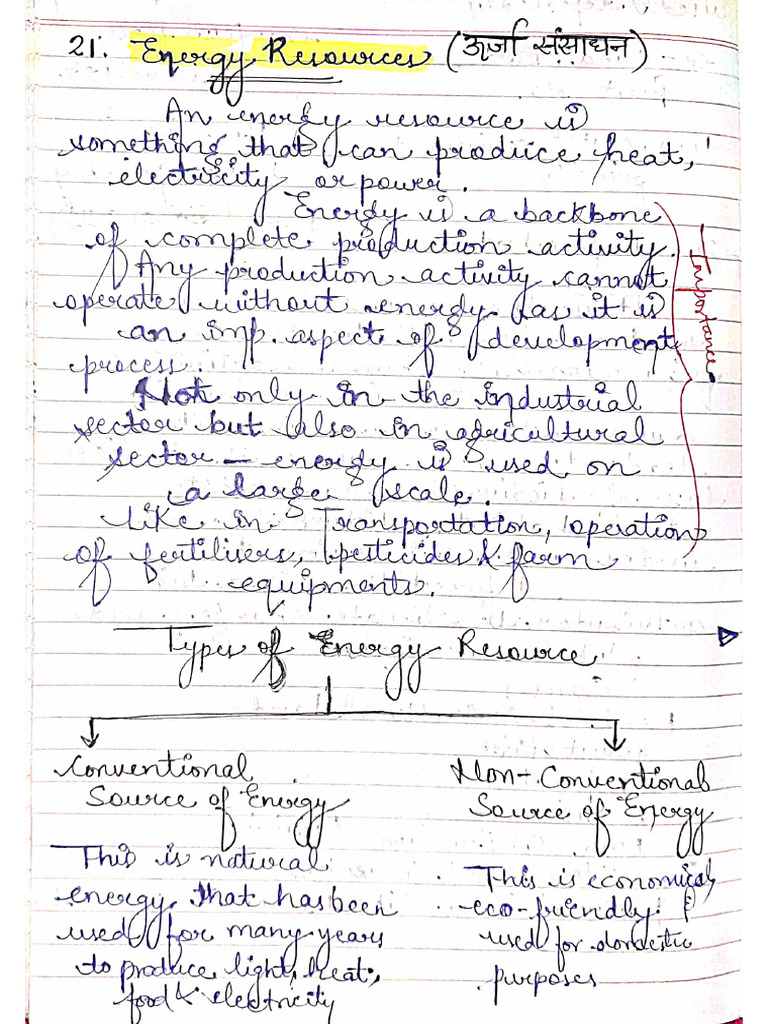 21. Energy Resources (ऊर्जा संसाधन)
An energy resource is
something that can produce heat,
electricity or power.
Energy is a backbone
of complete production activity.
Any production activity cannot
operate without energy as it is
an imp. aspect of development
process.
Importance
Not only in the industrial
sector but also in agricultural
sector — energy is used on
a large scale.
Like in Transportation, operation
of fertilisers, pesticides & farm
equipments.
Types of Energy Resource
Conventional
Source of Energy
This is natural
energy that has been
used for many years
to produce light, heat,
food & electricity
Non-Conventional
Source of Energy
This is economical
eco-friendly &
used for domestic
purposes